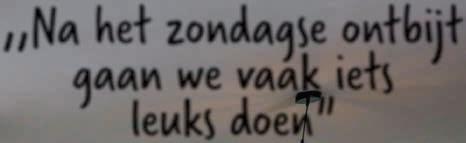 „Na het zondagse ontbijt
gaan we vaak iets
leuks doen”